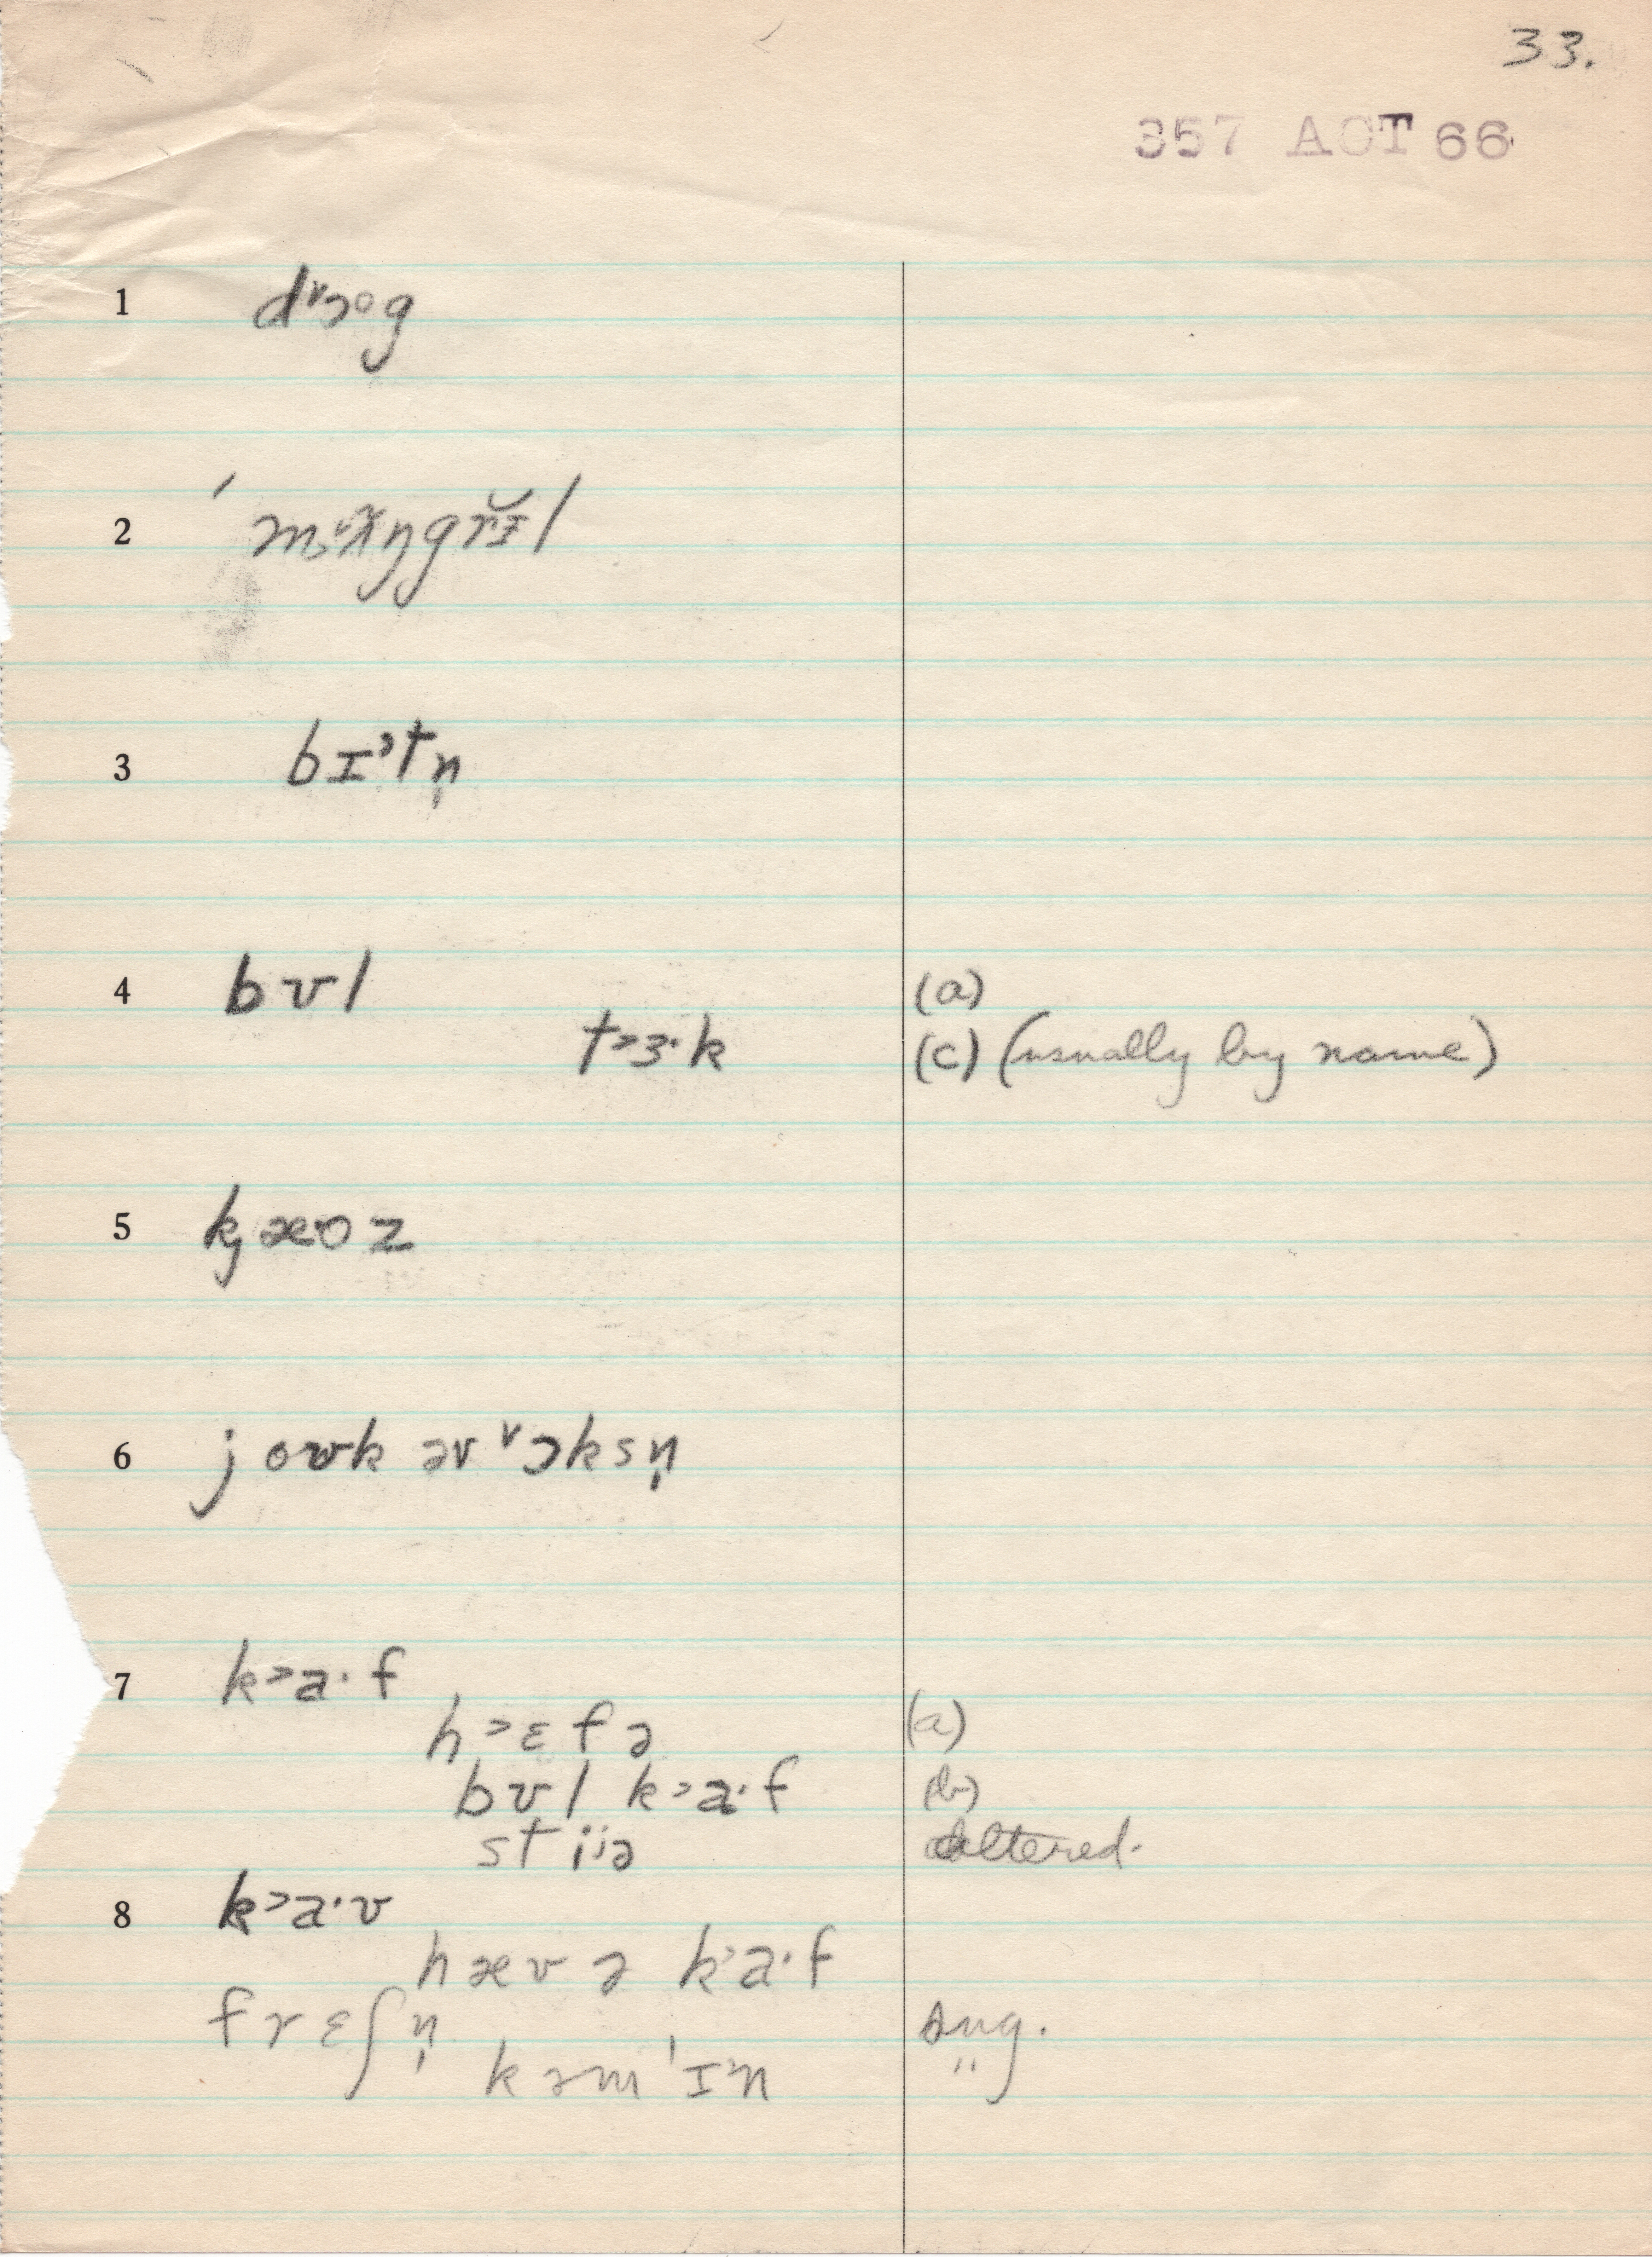 33.
357 ACT 66
1 dᵛɔᵒg
2 ˈmɐæ̃ŋgrɪ̵̆l
3 bɪᵊtn̩
4 bʊl (a)
t˃ɜ·k (c) (usually by name)
5 kj æʊ z
6 j oʊk əv ᵛɔksn̩
7 k˃a·f
h˃ɛfə (a)
bʊl k˃a·f (b)
st iᴶə altered.
8 k˃a·v
hæv ə k˃a·f
frɛʃn̩ sug.
kəmˈɪn "